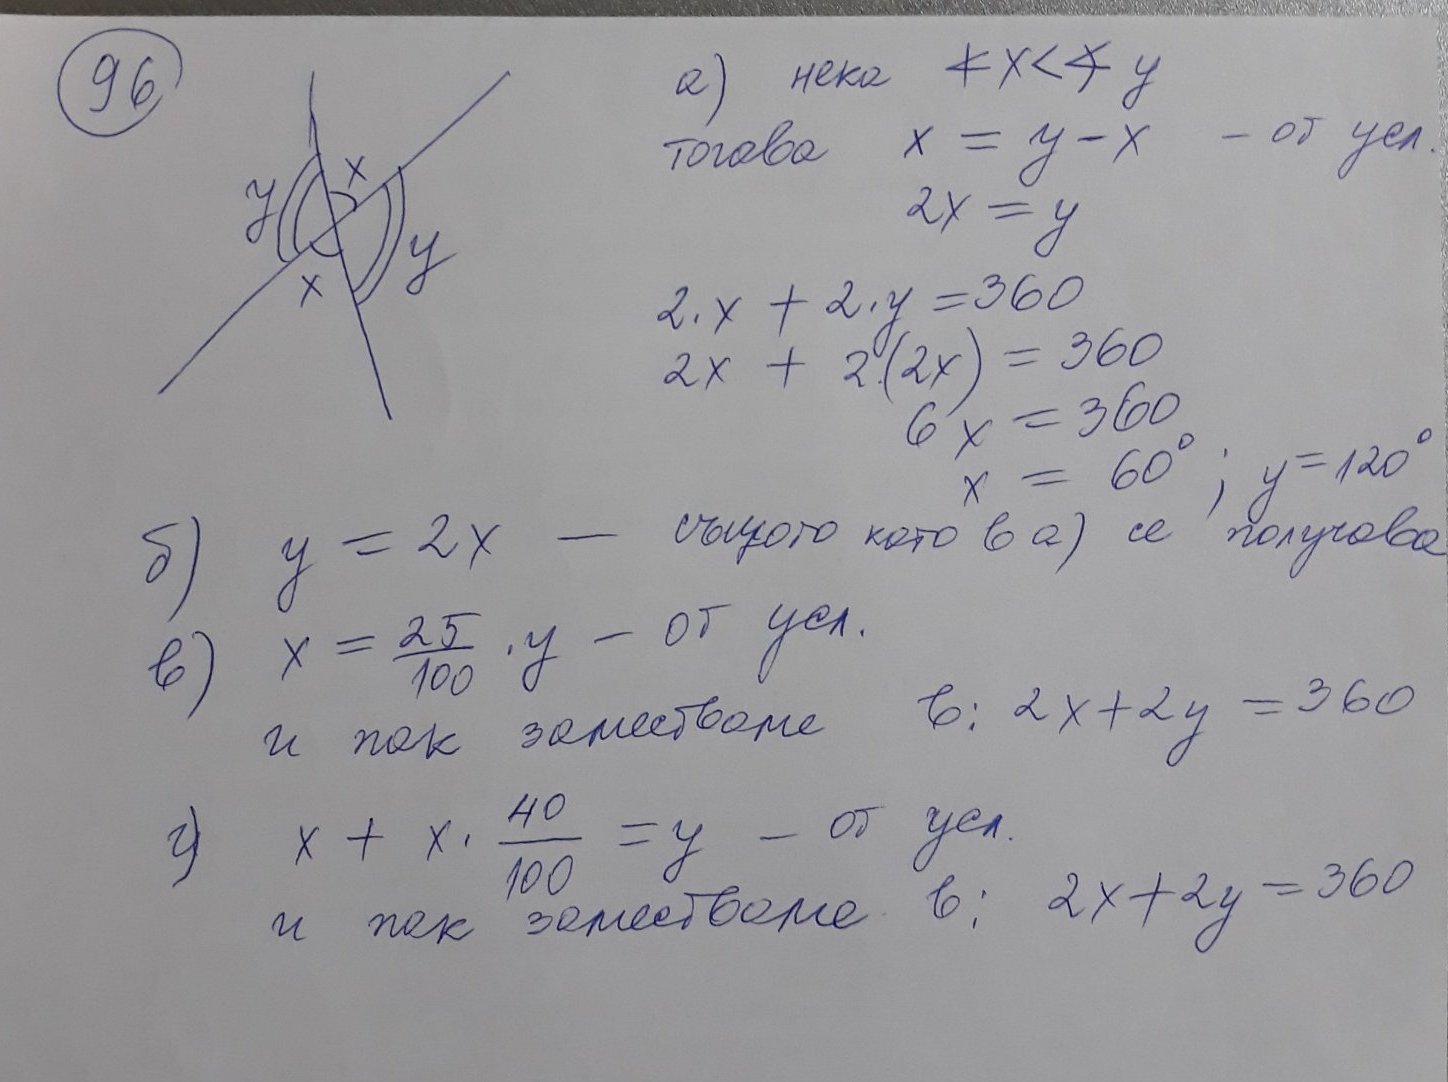 96
x
y
y
x
а) нека ∢ x < ∢ y
тогава x = y - x - от усл.
2x = y
2.x + 2.y = 360
2x + 2.(2x) = 360
6x = 360
x = 60° ; y = 120°
б) y = 2x — същото като в а) се получава
в) x = 25/100 . y - от усл.
и пак заместваме в: 2x + 2y = 360
г) x + x. 40/100 = y - от усл.
и пак заместваме в: 2x + 2y = 360